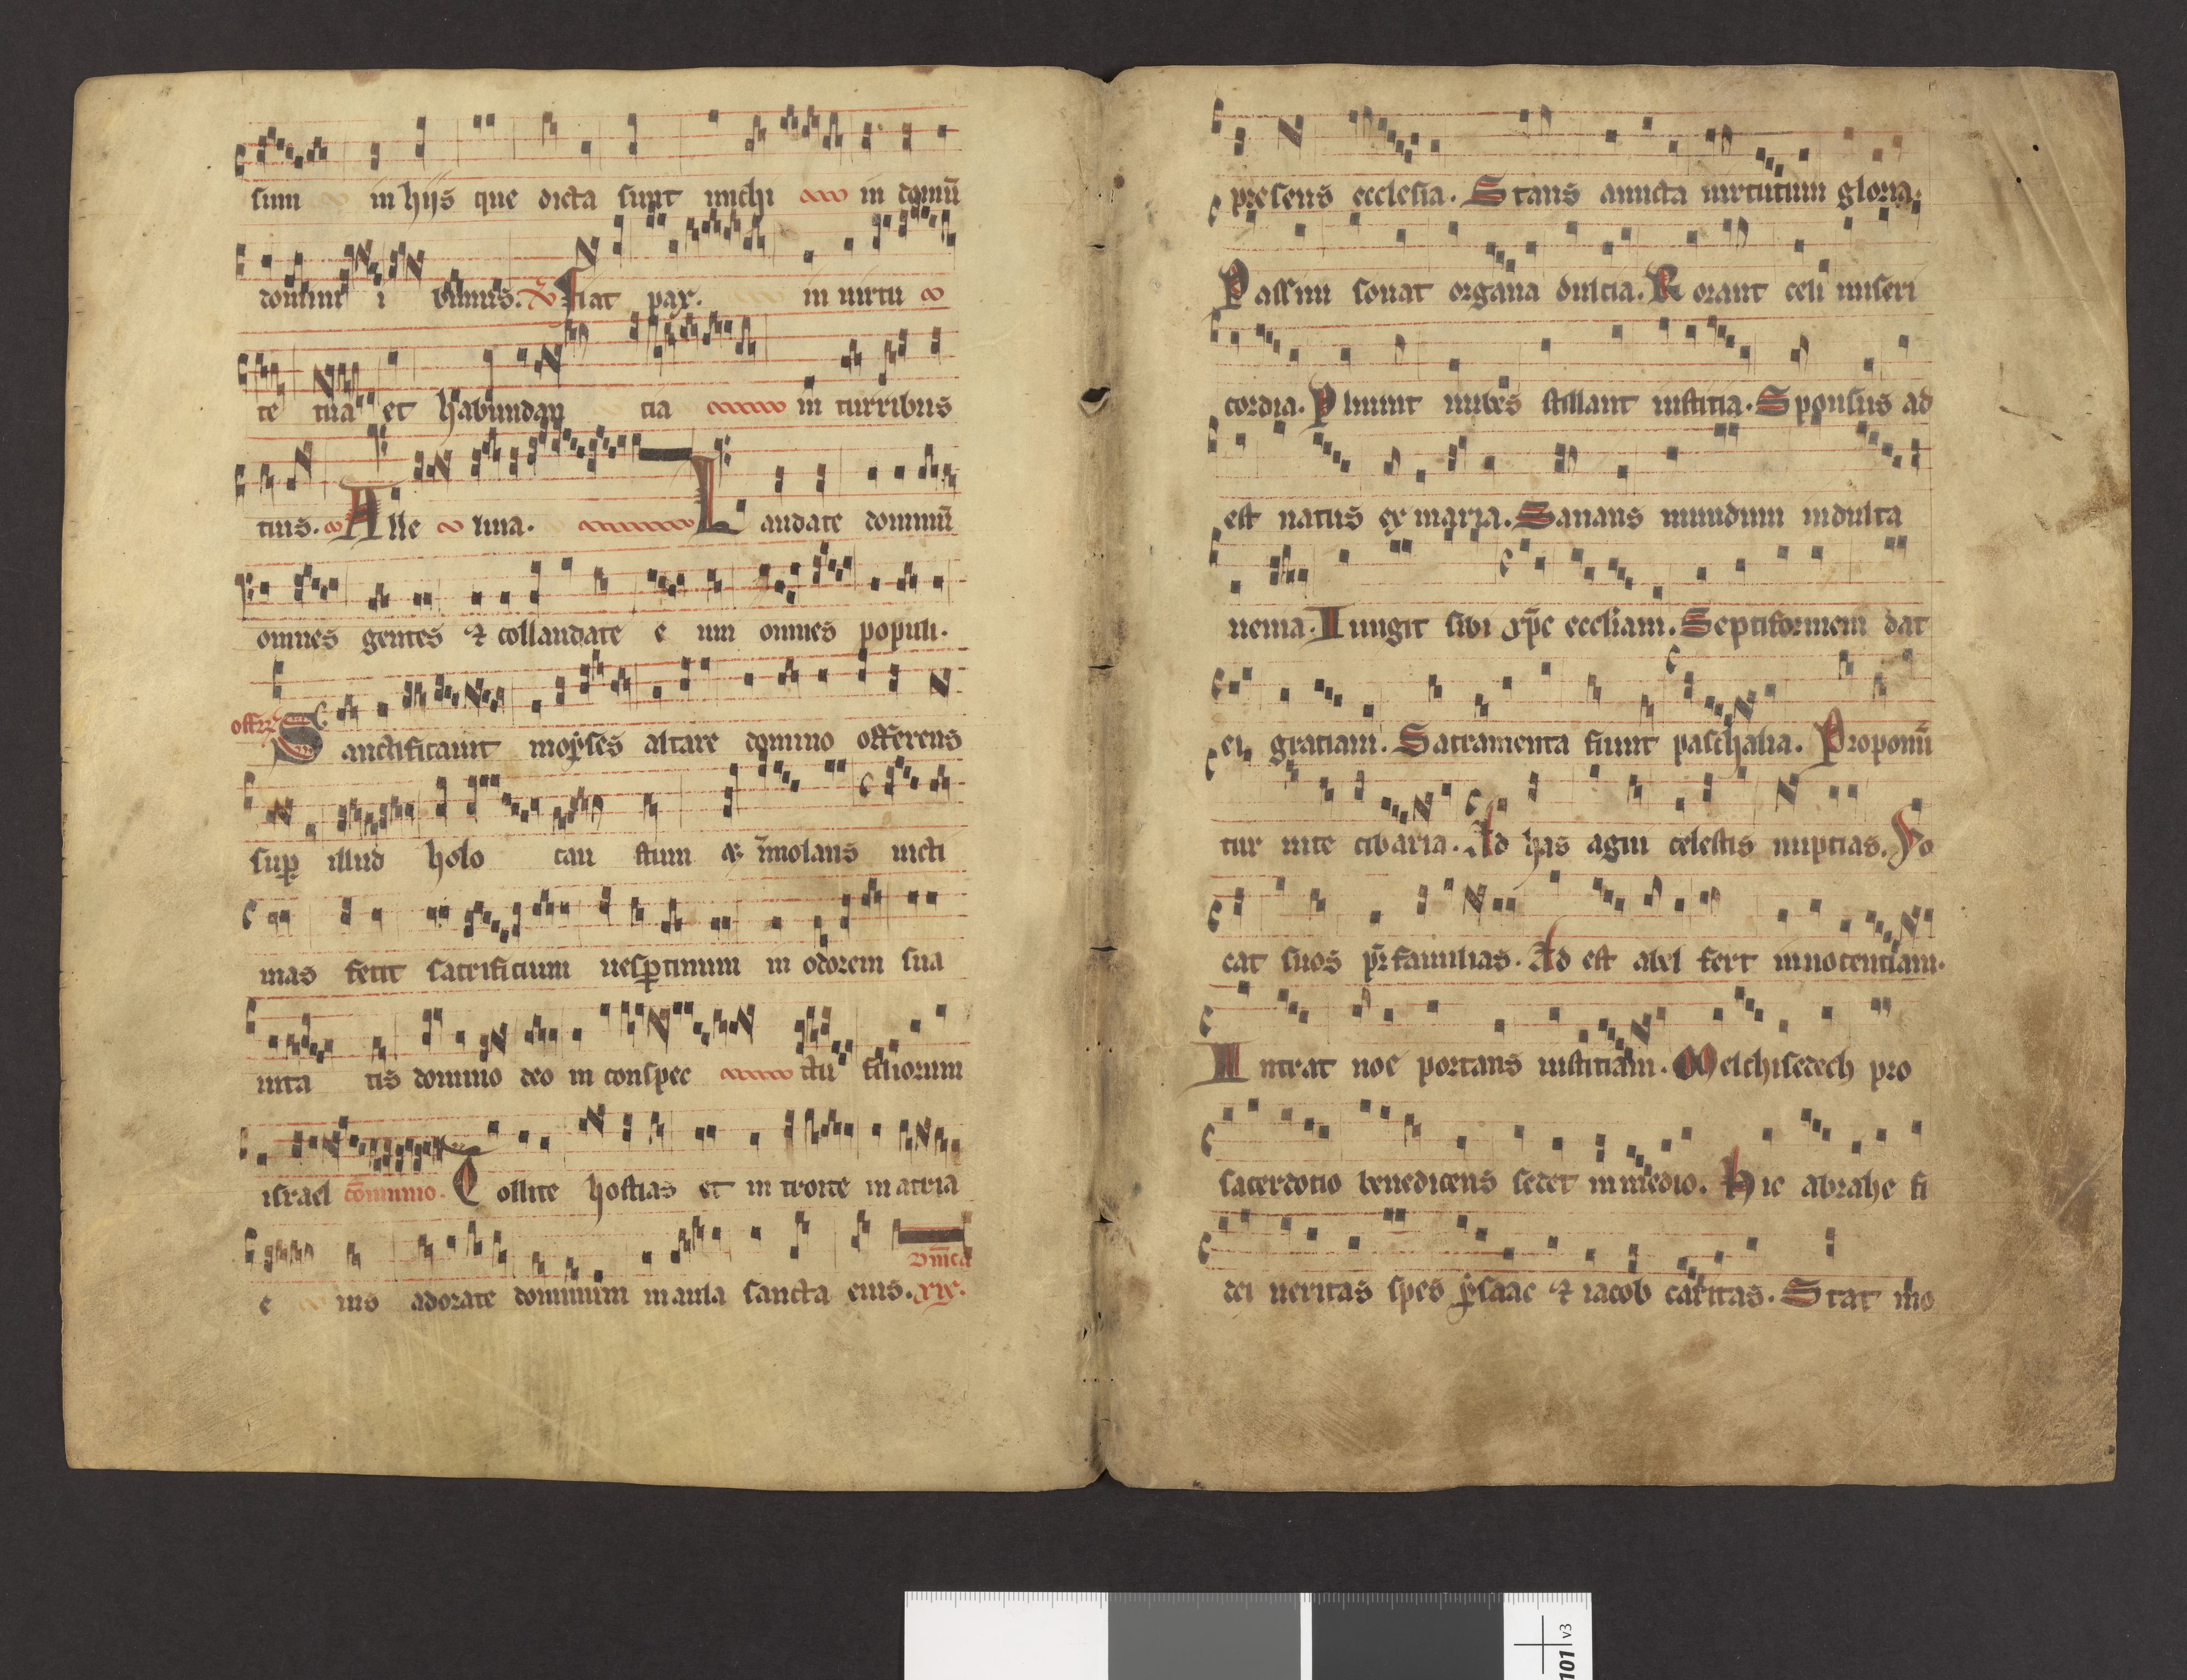 sum in hijs que dicta sunt michi in domū
domini i bimus. Fiat pax. in uirtu
te tua et habundan tia in turribus
tuis. Alle luia. Laudate dominū
omnes gentes ⁊ collaudate e um omnes populi.
off
Sanctificauit moyses altare domino offerens
sup illud holo cau stum ⁊ īmolans uicti
mas fecit sacrificium uespertinum in odorem sua
uita tis domino deo in conspec ctu filiorum
israel cōmunio. Tollite hostias et in troite in atria
e ius adorate dominum in aula sancta eius. xix.
Dn̄ica
presens ecclesia. Stans amicta uirtutum gloria.
Passim sonat organa dulcia. Rorant celi miseri
cordia. Pluunt nubes stillant iusticia. Sponsus ad
est natus ex maria. Sanans mundum indulta
uenia. Iungit sibi xp̄c eccliam. Septiformem dat
ei gratiam. Sacramenta fiunt paschalia. Proponū
tur uite cibaria. Ad has agni celestis nuptias. Uo
cat suos pr̄ familias. Ad est abel fert innocentiam.
Intrat noe portans iustitiam. Melchisedech pro
sacerdotio benedicens sedet in medio. Hic abrahe fi
dei ueritas spes ysaac ⁊ iacob caritas. Stat mo
101 v3